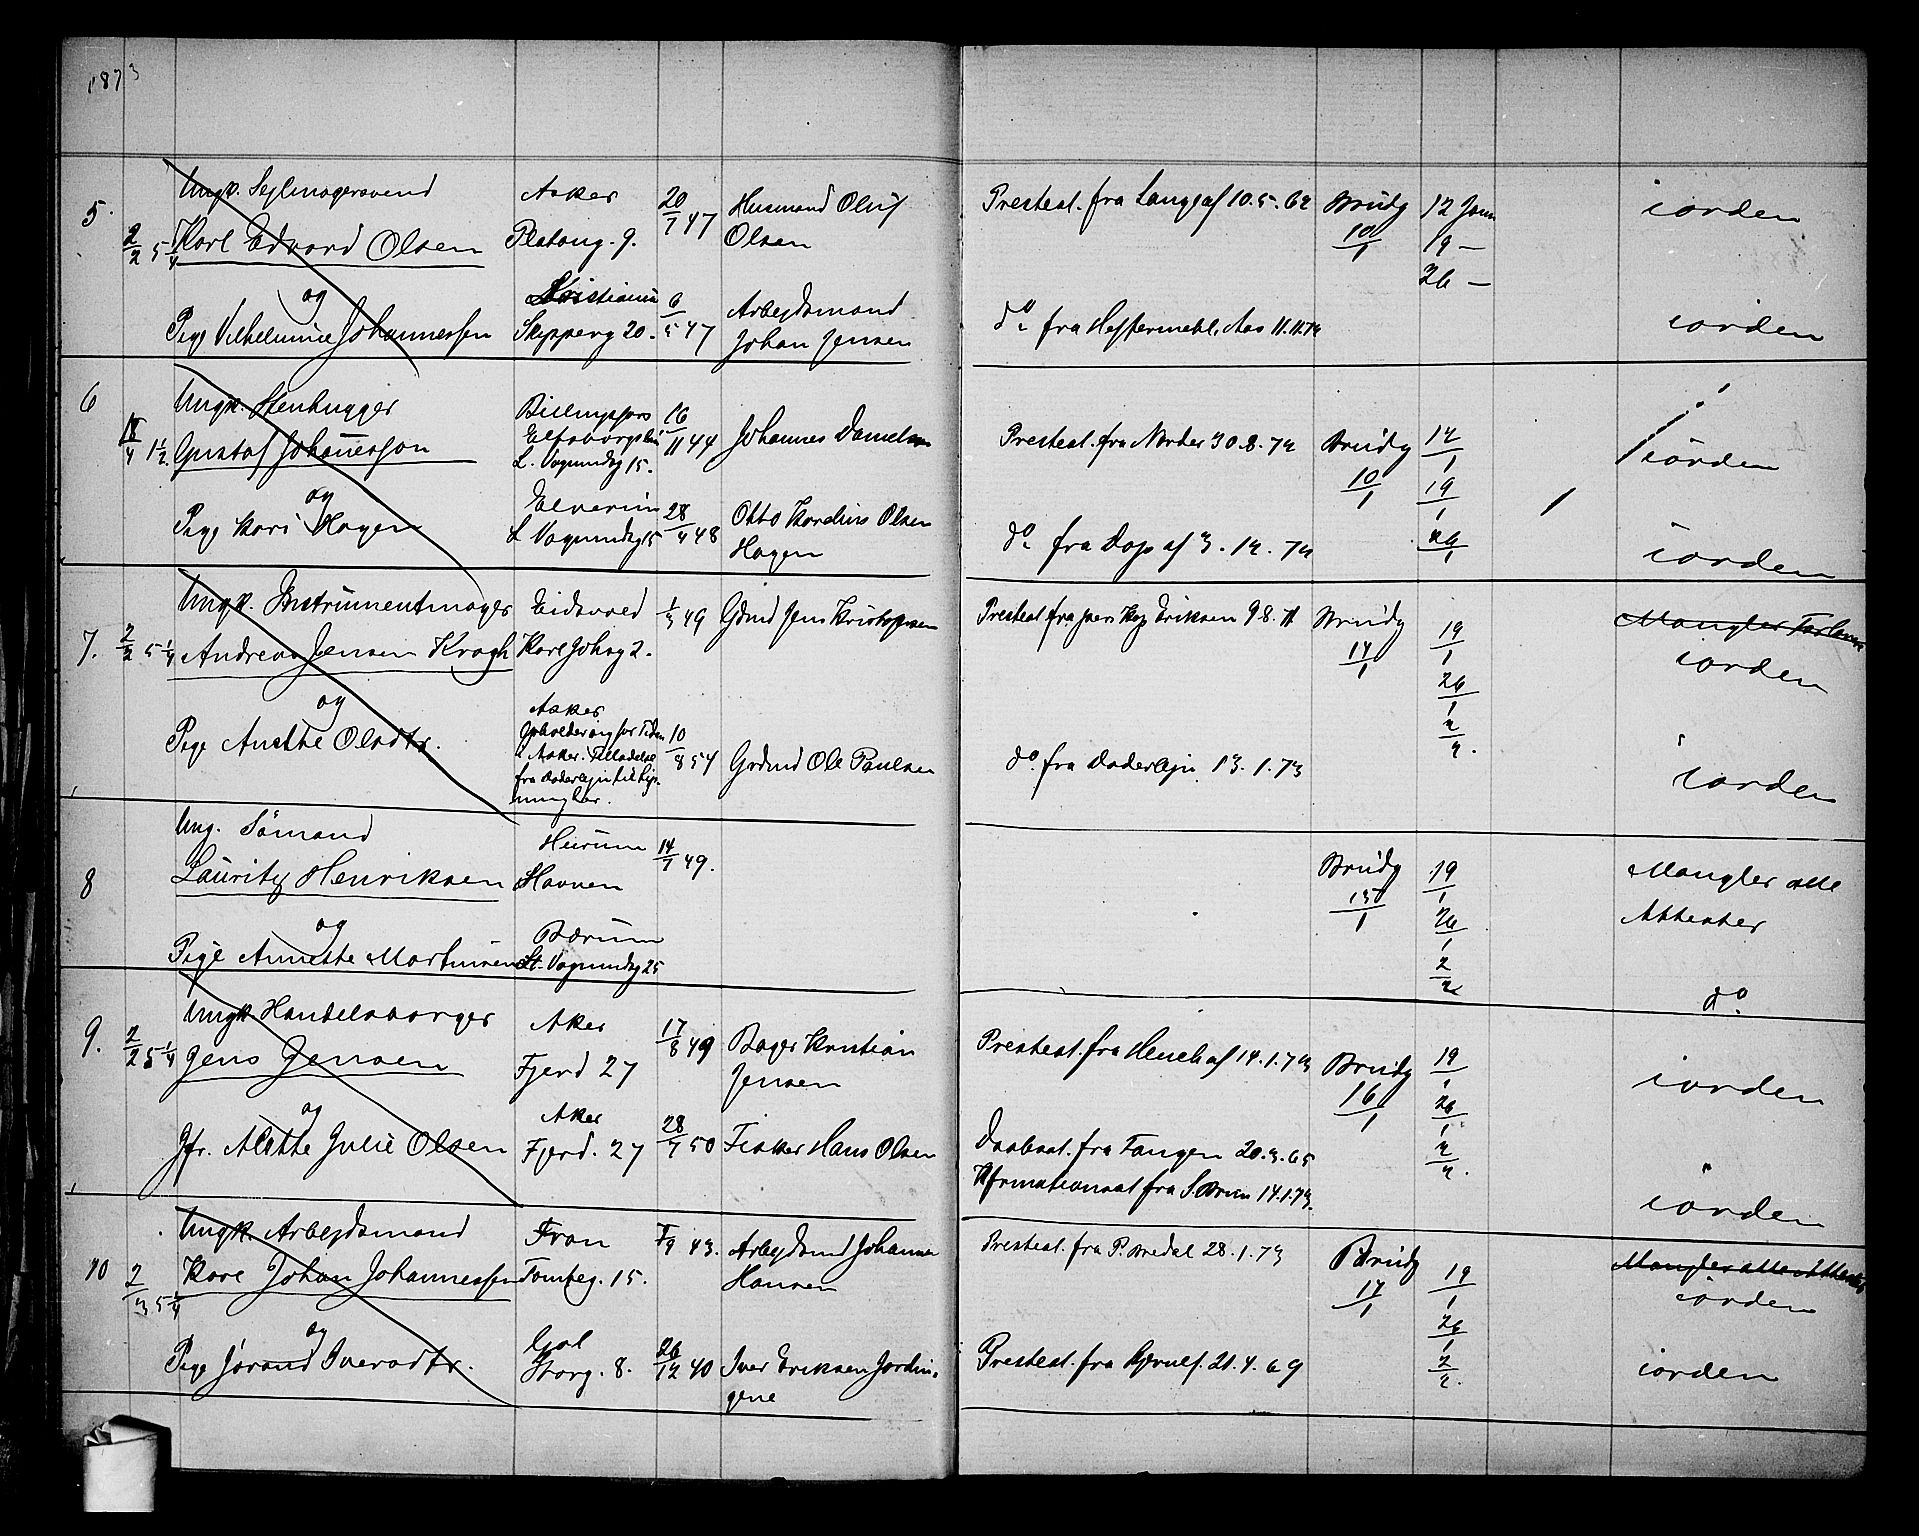 1873
5.
2/2 5 1/4
Ungk. Sejlmagersvend
Karl Edvard Olsen
og
Pige Vilhelmine Johannessen
Aaker
Platoug. 9.
Kristiania
Skipperg 20.
20/7 47
6/5 47
Husmand Oluf
Olsen
Arbejdsmand
Johan Jensen
Presteat. fra Lange af 10.5.62
do fra Heftermehl, Aas 11.11.72
Brudg
10/1
12 Janu
19 —
26 —
iorden
iorden
6
1 1/2
Ungk. Stenhugger
Gustaf Johannesson
og
Pige Kari Hagen
Billingsfors
Elfsborgslän
L. Vognmdsg 15.
Elverum
L Vognmdsg 15
16/11 44
28/4 48
Johannes Danielson
Otto Kordius Olsen
Hagen
Presteat. fra Norder 30.8.72
do fra Dop af 3.12.72
Brudg
10/1
12/1
19/1
26/1
iorden
iorden
7.
2/2 5 1/4
Ungk. Instrumentmager
Andreas Jensen Krogh
og
Pige Anette Olsdtr.
Eidsvold
Karl Johsg 2.
Aaker
i Aaker. Tilladelse
1/3 49
10/8 54
Gdmd Jens Kristophersen
Grdmd Ole Paulsen
Eriksen 9.8.71
do. fra 13.1.73
Brudg
14/1
19/1
26/1
2/2.
Mangler
iorden
iorden
8
Ung. Sömand
Lauritz Henriksen
og
Pige Annette Martinsen
Hurum
Havnen
Bærum
St. Vognmdsg 25
14/7 49.
Brudg
15/1
19/1
26/1
2/2
Mangler alle
Attester
do.
9.
2/2 5 1/4
Ungk Handelsborger
Jens Jensen
og
Jfr. Alette Julie Olsen
Aker
Fjerd 27
Aker
Fjerd. 27
17/8 49
28/7 50
Bager Kristian
Jensen
Fisker Hans Olsen
Presteat. fra Hench af 14.1.73
Daabsat. fra Tangen 20.3.65
Kfrmationsat fra S. Brun 14.1.73.
Brudg
16/1
19/1
26/1
2/2.
iorden
iorden
10
2/3 5 1/4
Ungk. Arbejdsmand
Karl Johan Johannessen
og
Pige Jørand Iversdtr.
Fron
Tomteg. 15.
Gol
Storg. 8.
7/9 43.
26/12 40
Arbejdsmd Johannes
Hansen
Iver Eriksen Jordin-
gene
Presteat. fra P. Bredal 28.1.73
Presteat. fra 21.4.69
Brudg
17/1
19/1
26/1
2/2.
Mangler alle Attester
iorden
iorden